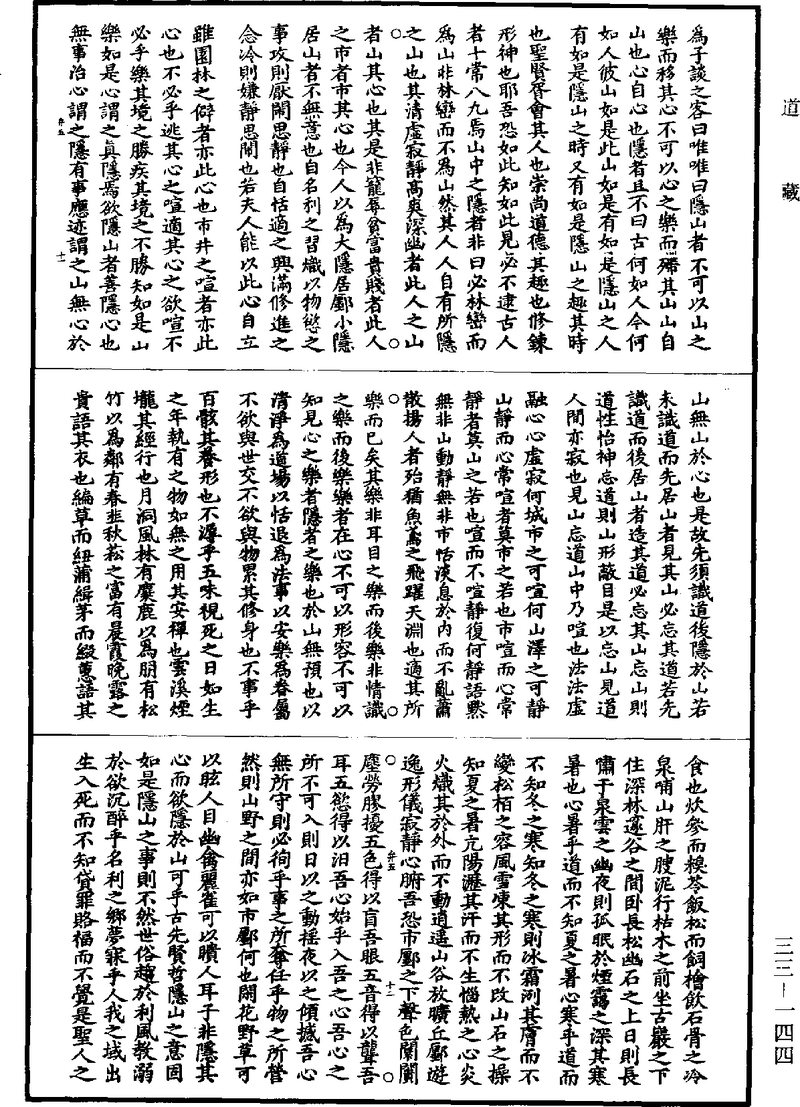 道藏
爲子談之客曰唯唯曰隱山者不可以山之
樂而移其心不可以心之樂而殢其山山自
山也心自心也隱者且不曰古何如人今何
如人彼山如是此山如是有如是隱山之人
有如是隱山之時又有如是隱山之趣其時
也聖賢胥會其人也崇尚道德其趣也修鍊
形神也耶吾恐如此知如此見必不逮古人
者十常八九焉山中之隱者非曰必林巒而
爲山非林巒而不爲山然其人人自有所隱
之山也其清虛寂靜高爽深幽者此人之山
者山其心也其是非寵辱貧富貴賤者此人
之市者市其心也今人以爲大隱居鄽小隱
居山者不無意也自名利之習熾以物慾之
事攻則厭鬧思靜也自恬適之興滿修進之
念冷則嫌靜思鬧也若夫人能以此心自立
雖園林之僻者亦此心也市井之喧者亦此
心也不必乎逃其心之喧適其心之欲喧不
必乎樂其境之勝疾其境之不勝知如是山
樂如是心謂之真隱焉欲隱山者善隱心也
無事治心謂之隱有事應迹謂之山無心於
弁五
十一
山無山於心也是故先須識道後隱於山若
未識道而先居山者見其山必忘其道若先
識道而後居山者造其道必忘其山忘山則
道性怡神忘道則山形敵目是以忘山見道
人間亦寂也見山忘道山中乃喧也法法虛
融心心虛寂何城市之可喧何山澤之可靜
山靜而心常喧者莫市之若也市喧而心常
靜者莫山之若也喧而不喧靜復何靜語黙
無非山動靜無非市恬淡息於內而不亂蕭
散揚人者殆猶魚鳶之飛躍天淵也適其所
樂而已矣其樂非耳目之樂而後樂非情識
之樂而後樂樂者在心不可以形容不可以
知見心之樂者隱者之樂也於山無預也以
清淨為道場以恬退為法事以安樂為眷屬
不欲與世交不欲與物累其修身也不事乎
百骸其養形也不滯乎五味視死之日如生
之年執有之物如無之用其安禪也雲溪煙
壠其經行也月洞風林有麋鹿以爲朋有松
竹以爲鄰有春韭秋菘之富有晨霞晚露之
貴語其衣也編草而紐蒲緝茅而綴蕙語其
食也炊參而糗苓飯松而飼檜飲石骨之冷
泉哺山肝之腴泥行枯木之前坐古巖之下
住深林邃谷之間臥長松幽石之上日則長
嘯于泉雲之幽夜則孤眠於煙霧之深其寒
暑也心暑乎道而不知夏之暑心寒乎道而
不知冬之寒知冬之寒則冰霜冽其膚而不
變松栢之容風雪凍其形而不改山石之操
知夏之暑亢陽瀝其汗而不生惱熱之心炎
火熾其於外而不動逍遥山谷放曠丘鄽遊
逸形儀寂靜心腑吾恐市鄽之下聲色闠闤
塵勞膠擾五色得以盲吾眼五音得以聾吾
弁五
十二
耳五慾得以汩吾心始乎入吾之心吾心之
所不可入則日以之動搖夜以之傾撼吾心
無所守則必徇乎事之所奪任乎物之所營
然則山野之間亦如市鄽何也閑花野草可
以眩人目幽禽麗雀可以聵人耳子非隱其
心而欲隱於山可乎古先賢哲隱山之意固
如是隱山之事則不然世俗趨於利風教溺
於欲沉醉乎名利之鄉夢寐乎人我之域出
生入死而不知貸罪賂福而不覺是聖人之
三三－一四四